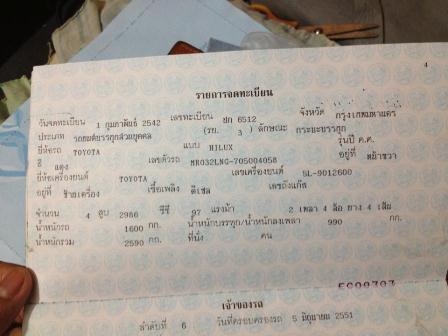 4
รายการจดทะเบียน
วันจดทะเบียน 1 กุมภาพันธ์ 2542 เลขทะเบียน ปก 6512 จังหวัด กรุงเทพมหานคร
ประเภท รถยนต์บรรทุกส่วนบุคคล (รย. 3 ) ลักษณะ กระบะบรรทุก
ยี่ห้อรถ TOYOTA แบบ HILUX รุ่นปี ค.ศ.
สี แดง เลขตัวรถ MR032LNG-705004058 อยู่ที่ หน้าขวา
ยี่ห้อเครื่องยนต์ TOYOTA เลขเครื่องยนต์ 5L-9012600
อยู่ที่ ซ้ายเครื่อง เชื้อเพลิง ดีเซล เลขถังแก๊ส
จำนวน 4 สูบ 2986 ซีซี 97 แรงม้า 2 เพลา 4 ล้อ ยาง 4 เส้น
น้ำหนักรถ 1600 กก. น้ำหนักบรรทุก/น้ำหนักลงเพลา 990 กก.
น้ำหนักรวม 2590 กก. ที่นั่ง คน
เจ้าของรถ
ลำดับที่ 6 วันที่ครอบครองรถ 5 มิถุนายน 2551